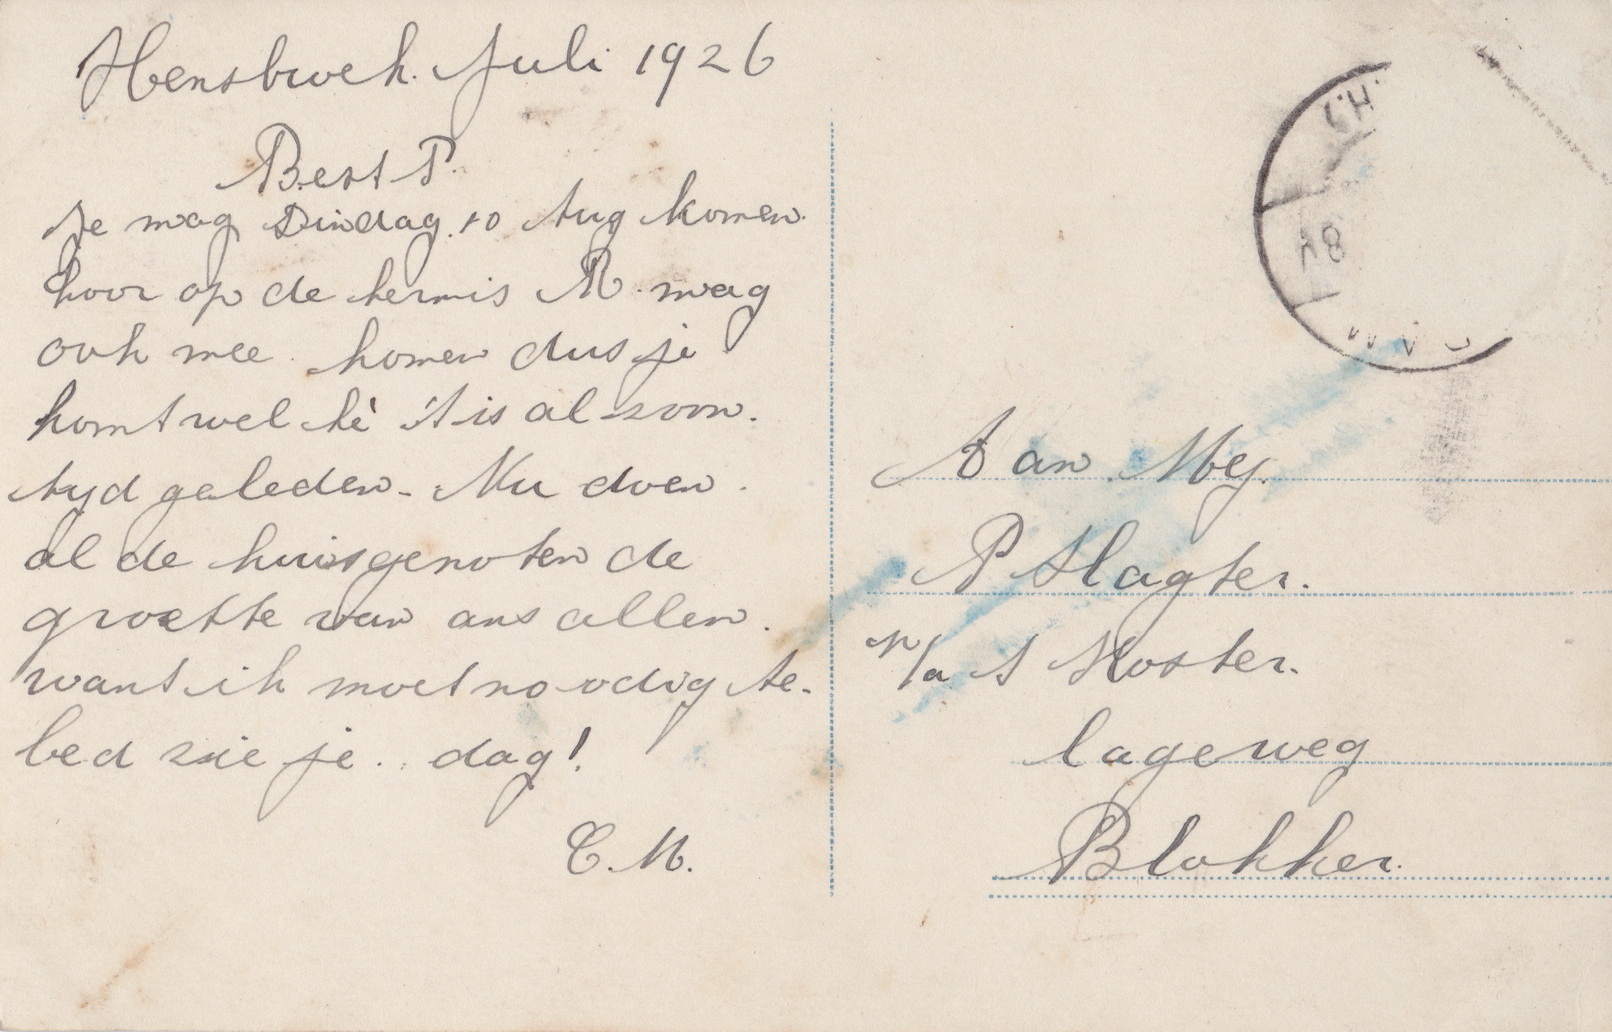 Hensbroek. Juli 1926
Best P.
Je mag Dindag 10 Aug komen
hoor op de kermis R. mag
ook mee komen dus je
komt wel hè 't is al zoon.
tyd geleden - Nu doen
al de huisgenoten de
groette van ons allen.
want ik moet noodig te-
bed zie je. dag!
C. M.
Aan Mej.
P Slagter.
p/a S Koster.
lageweg
Blokker.